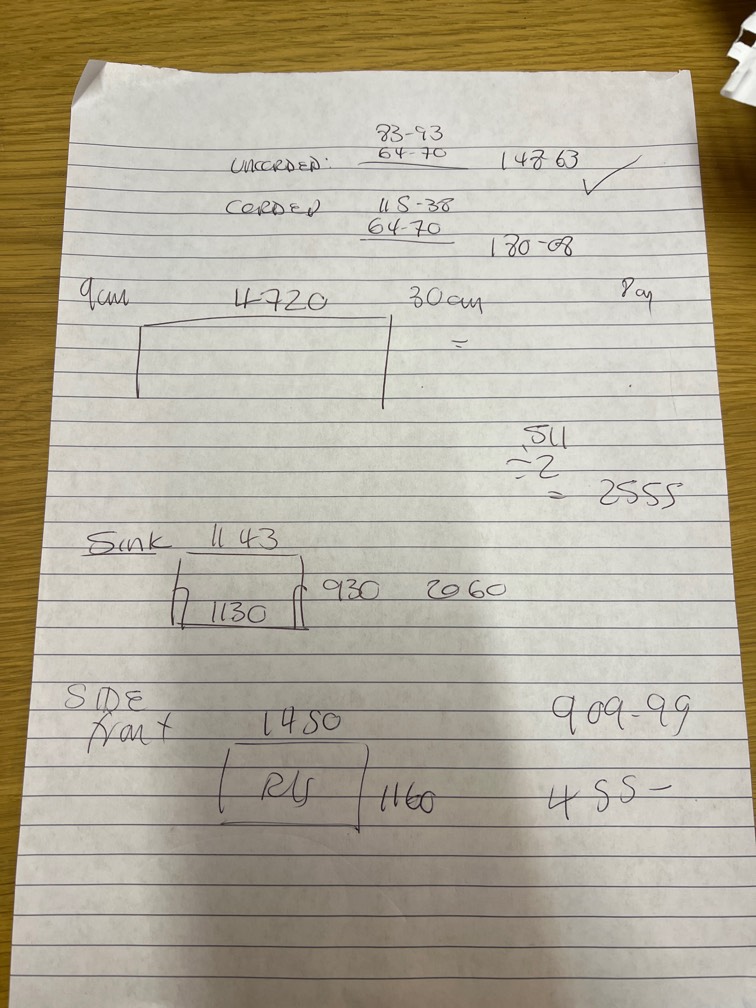 83-93
UNCORDED: 64-70 148 63
CORDED 115-38
64-70
180-08
9cm 4720 30cm
=
.511
÷2
= 2555
Sink 1143
930 2060
1130
SIDE 909-99
front 1450
1160 455-